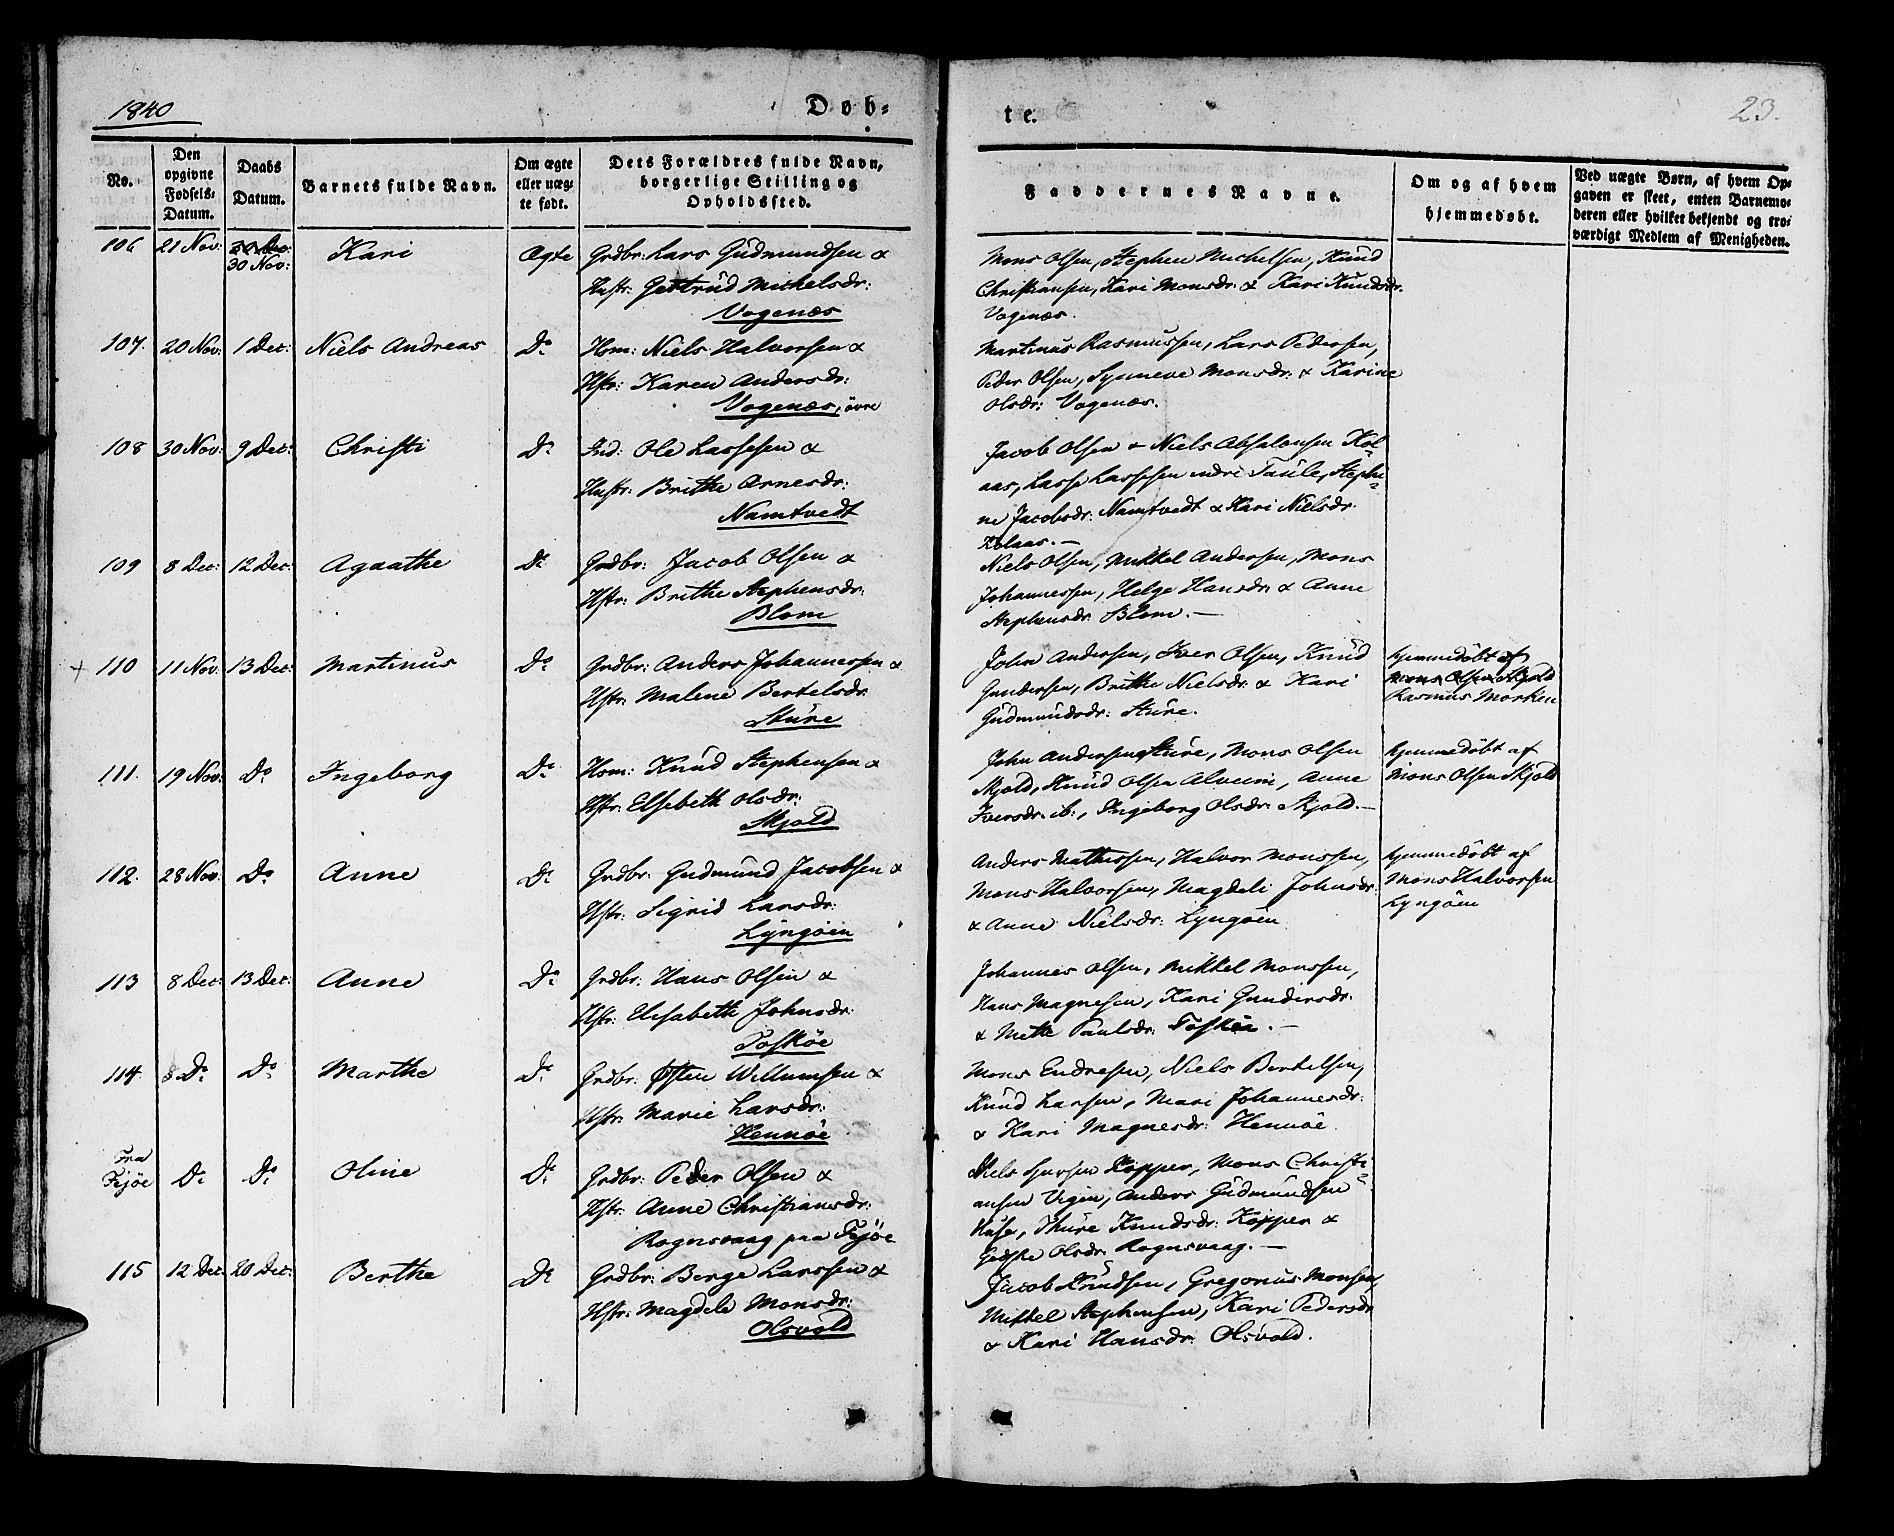 1840
Døb-
te.
23.
No.
Den opgivne Fødsels-Datum.
Daabs Datum.
Barnets fulde Navn.
Om ægte eller uæg-te født.
Dets Forældres fulde Navn, borgerlige Stilling og Opholdssted.
Faddernes Navne.
Om og af hvem hjemmedøbt.
Ved uægte Børn, af hvem Op-gaven er skeet, enten Barnemo-deren eller hvilket bekjendt og tro-værdigt Medlem af Menigheden.
106 21 Nov: 30 Nov: Kari Ægte Grdbr: Lars Gudmundsen &
Hustr: Gertrud Michelsdr:
Vogenæs
Mons Olsen, Stephen Michelsen, Knud
Christiansen, Kari Monsdr: & Kari Knudsdr:
Vogenæs.
107. 20 Nov: 1 Dec: Niels Andreas Do Hsm: Niels Halvorsen &
Hstr: Karen Andersdr:
Vogenæs, övre
Martinus Rasmussen, Lars Pedersen,
Peder Olsen, Synneve Monsdr: & Karine
Olsdr: Vogenæs.
108 30 Nov: 9 Dec: Christi Do Ind: Ole Lassesen &
Hustr: Brithe Arnesdr:
Namtvedt
Jacob Olsen & Niels Absalonsen Kol-
aas, Lasse Lassesen nedri Taule, Stephi-
ne Jacobsdr: Namtvedt & Kari Nielsdr:
Kolaas.—
109 8 Dec: 12 Dec: Agaathe Do Grdbr: Jacob Olsen &
Hstr: Brithe Stephensdr:
Blom
Niels Olsen, Mikkel Andersen, Mons
Johannessen, Helge Hansdr: & Anne
Stephensdr: Blom.—
+ 110 11 Nov: 13 Dec: Martinus Do Grdbr: Anders Johannessen &
Hstr: Malene Bertelsdr:
Sture
John Andersen, Iver Olsen, Knud
Gundersen, Brithe Nielsdr: & Kari
Gudmundsdr: Sture.
hjemmedöbt af
Mons Olsen Skjold
Rasmus Morken
111. 19 Nov: Do Ingeborg Do Hsm: Knud Stephensen &
Hstr: Elsebeth Olsdr:
Skjold
John Andersen Sture, Mons Olsen
Skjold, Knud Olsen Alveim, Anne
Iversdr: ib:, Ingeborg Olsdr: Skjold.—
hjemmedöbt af
Mons Olsen Skjold
112. 28 Nov: Do Anne Do Grdbr: Gudmund Jacobsen &
Hstr: Sigrid Larsdr:
Lyngöen
Anders Mathissen, Halvor Monssen,
Mons Halvorsen, Magdeli Johnsdr:
& Anne Nielsdr: Lyngöen
hjemmedöbt af
Mons Halvorsen
Lyngöen
113 8 Dec: 13 Dec: Anne Do Grdbr: Hans Olsen &
Hstr: Elisabeth Johnsdr:
Toskøe
Johannes Olsen, Mikkel Monssen,
Hans Magnesen, Kari Gundersdr:
& Mette Paulsdr: Toskøe.—
114 8 Do Do Marthe Do Grdbr: Østen Willumsen &
Hstr: Marie Larsdr:
Hennøe
Mons Endresen, Niels Bertelsen,
Knud Larsen, Mari Johannesdr:
& Kari Magnesdr: Hennöe.
Fra
Fejöe Do Do Oline Do Grdbr: Peder Olsen &
Hstr: Anne Christiansdr:
Rognsvaag paa Fejöe
Niels Kopper, Mons Christi-
ansen Vigen, Anders Gudmundsen
Huse, Thure Knudsdr: Kopper &
Geske Olsdr: Rognsvaag.—
115 12 Dec: 20 Dec: Berthe Do Grdbr: Berge Larssen &
Hstr: Magdele Monsdr:
Olsvold
Jacob Knudsen, Gregorius Monsen,
Mikkel Stephensen, Kari Pedersdr:
& Kari Hansdr: Olsvold.